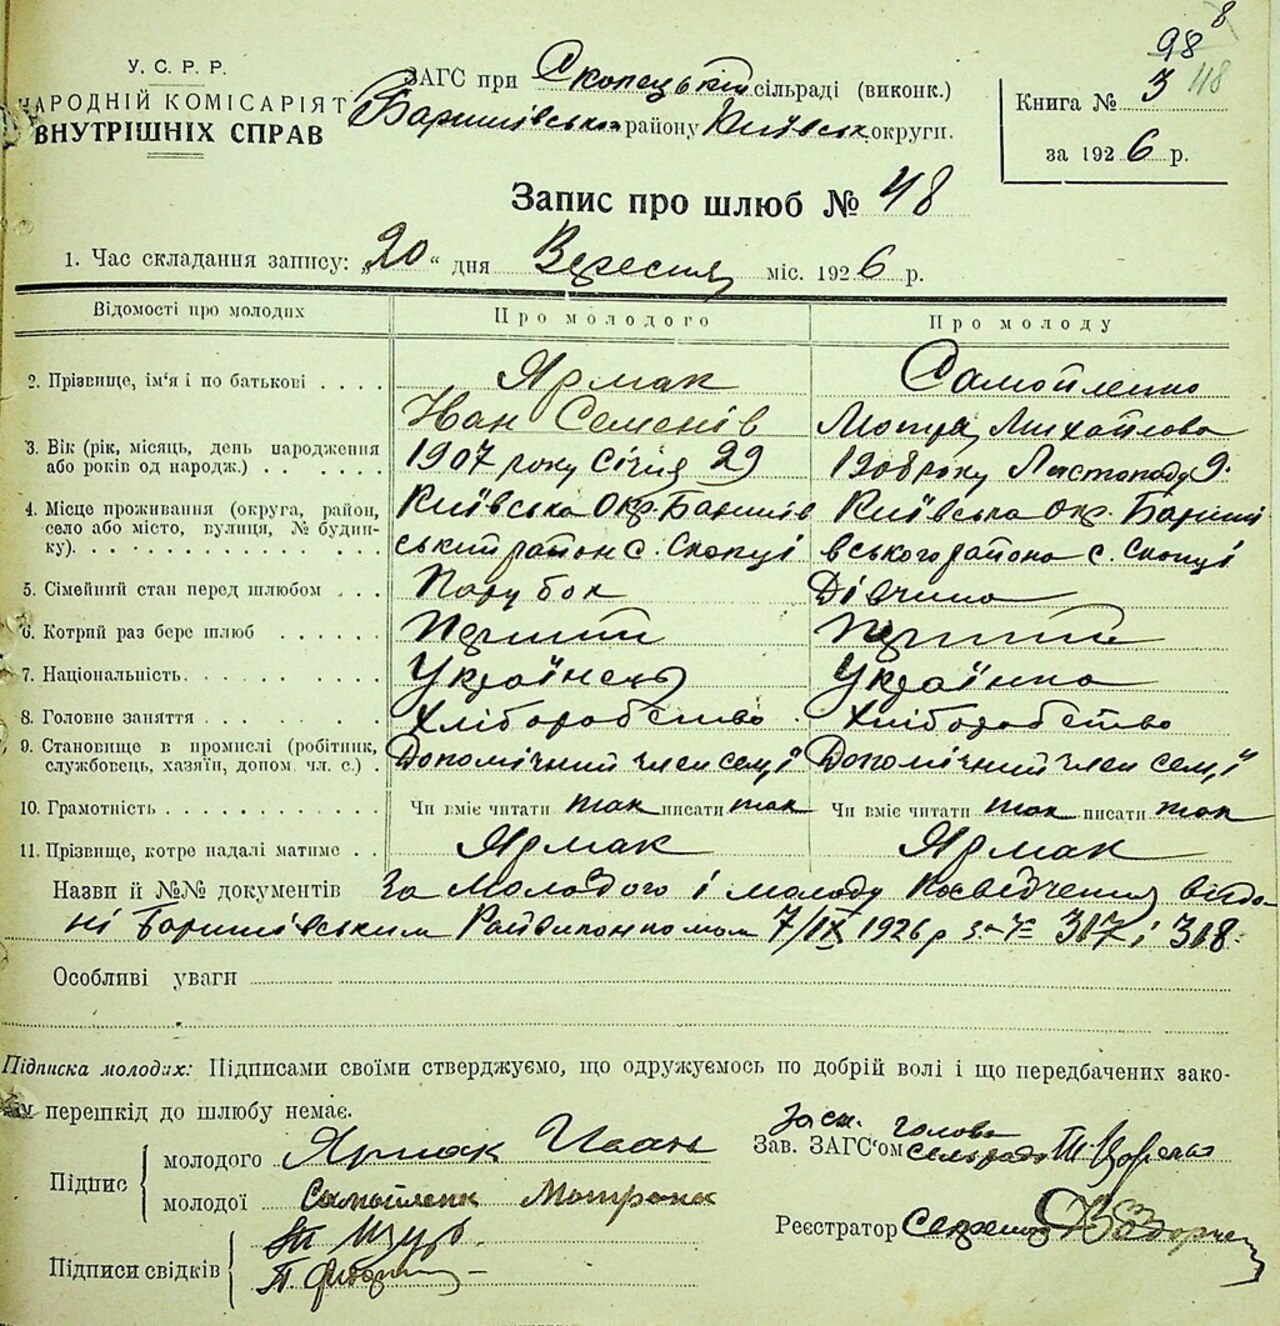 8
98
У. С. Р. Р.
НАРОДНІЙ КОМІСАРІЯТ
ВНУТРІШНІХ СПРАВ
ЗАГС при Скопецькій сільраді (виконк.)
Баришівського району Київськ округи.
Книга № 3 48
за 1926 р.
Запис про шлюб № 48
1. Час складання запису: „20“ дня Вересня міс. 1926 р.
Відомості про молодих
Про молодого
Про молоду
2. Прізвище, ім'я і по батькові . . . .
Ярмак
Іван Семенів
Самойленко
Мотря Михайлова
3. Вік (рік, місяць, день народження
або років од народж.) . . . . . .
1907 року Січня 29
1908 року Листопада 9.
4. Місце проживання (округа, район,
село або місто, вулиця, № будин-
ку). . . . . . . . . . . . . .
Київська Окр. Баришів
ський район с. Скопці
Київська Окр. Бариші
вського района с. Скопці
5. Сімейний стан перед шлюбом . . .
Парубок
Дівчина
6. Котрий раз бере шлюб . . . . . .
Перший
Перший
7. Національність. . . . . . . . . .
Українець
Українка
8. Головне заняття . . . . . . . .
Хліборобство
Хліборобство
9. Становище в промислі (робітник,
службовець, хазяїн, допом. чл. с.) .
Допомічний член сем,ї
Допомічний член сем,ї
10. Грамотність . . . . . . . . . . .
Чи вміє читати так писати так
Чи вміє читати так писати так
11. Прізвище, котре надалі матиме . .
Ярмак
Ярмак
Назви й №№ документів За молодого і молоду посвідчення видо-
ні Баришівським Райвиконкомом 7/IX 1926 р за № 317 і 318.
Особливі уваги
Підписка молодих: Підписами своїми стверджуємо, що одружуємось по добрій волі і що передбачених зако-
ном перешкід до шлюбу немає.
Підпис
молодого Ярмак Іван
молодої Самойленк Мотрона
Підписи свідків
Зав. ЗАГС'ом
голова
Сельради
Реєстратор Секретар